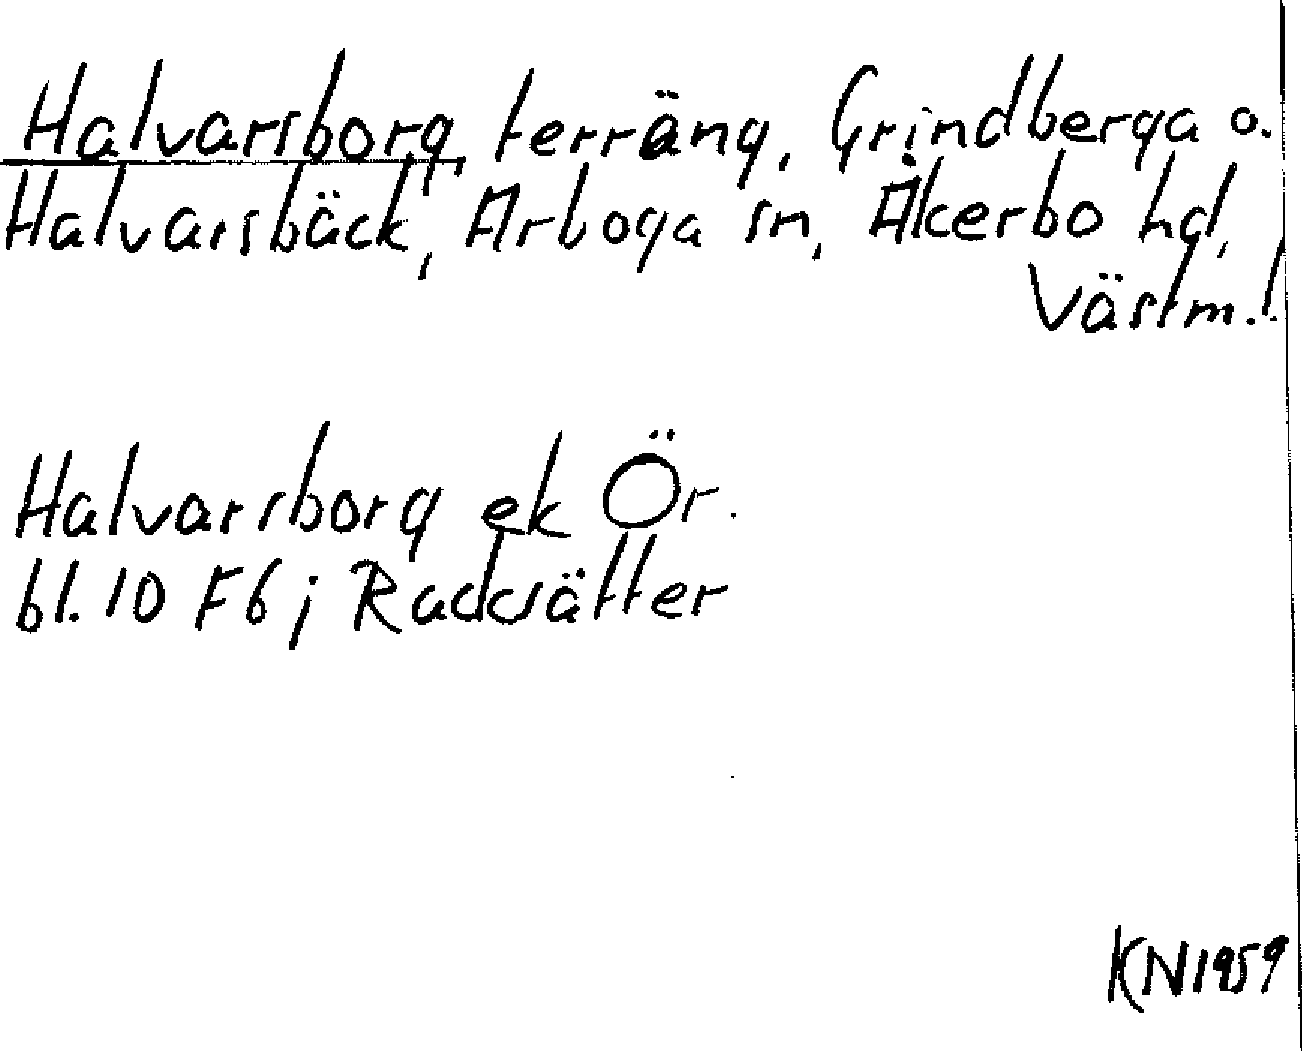 Halvarsborg, terräng, Grindberga o.
Halvarsbäck, Arboga sn, Åkerbo hd,
Västm.l.
Halvarsborg ek Ör.
bl. 10 F6 j Racksätter
KN 1959